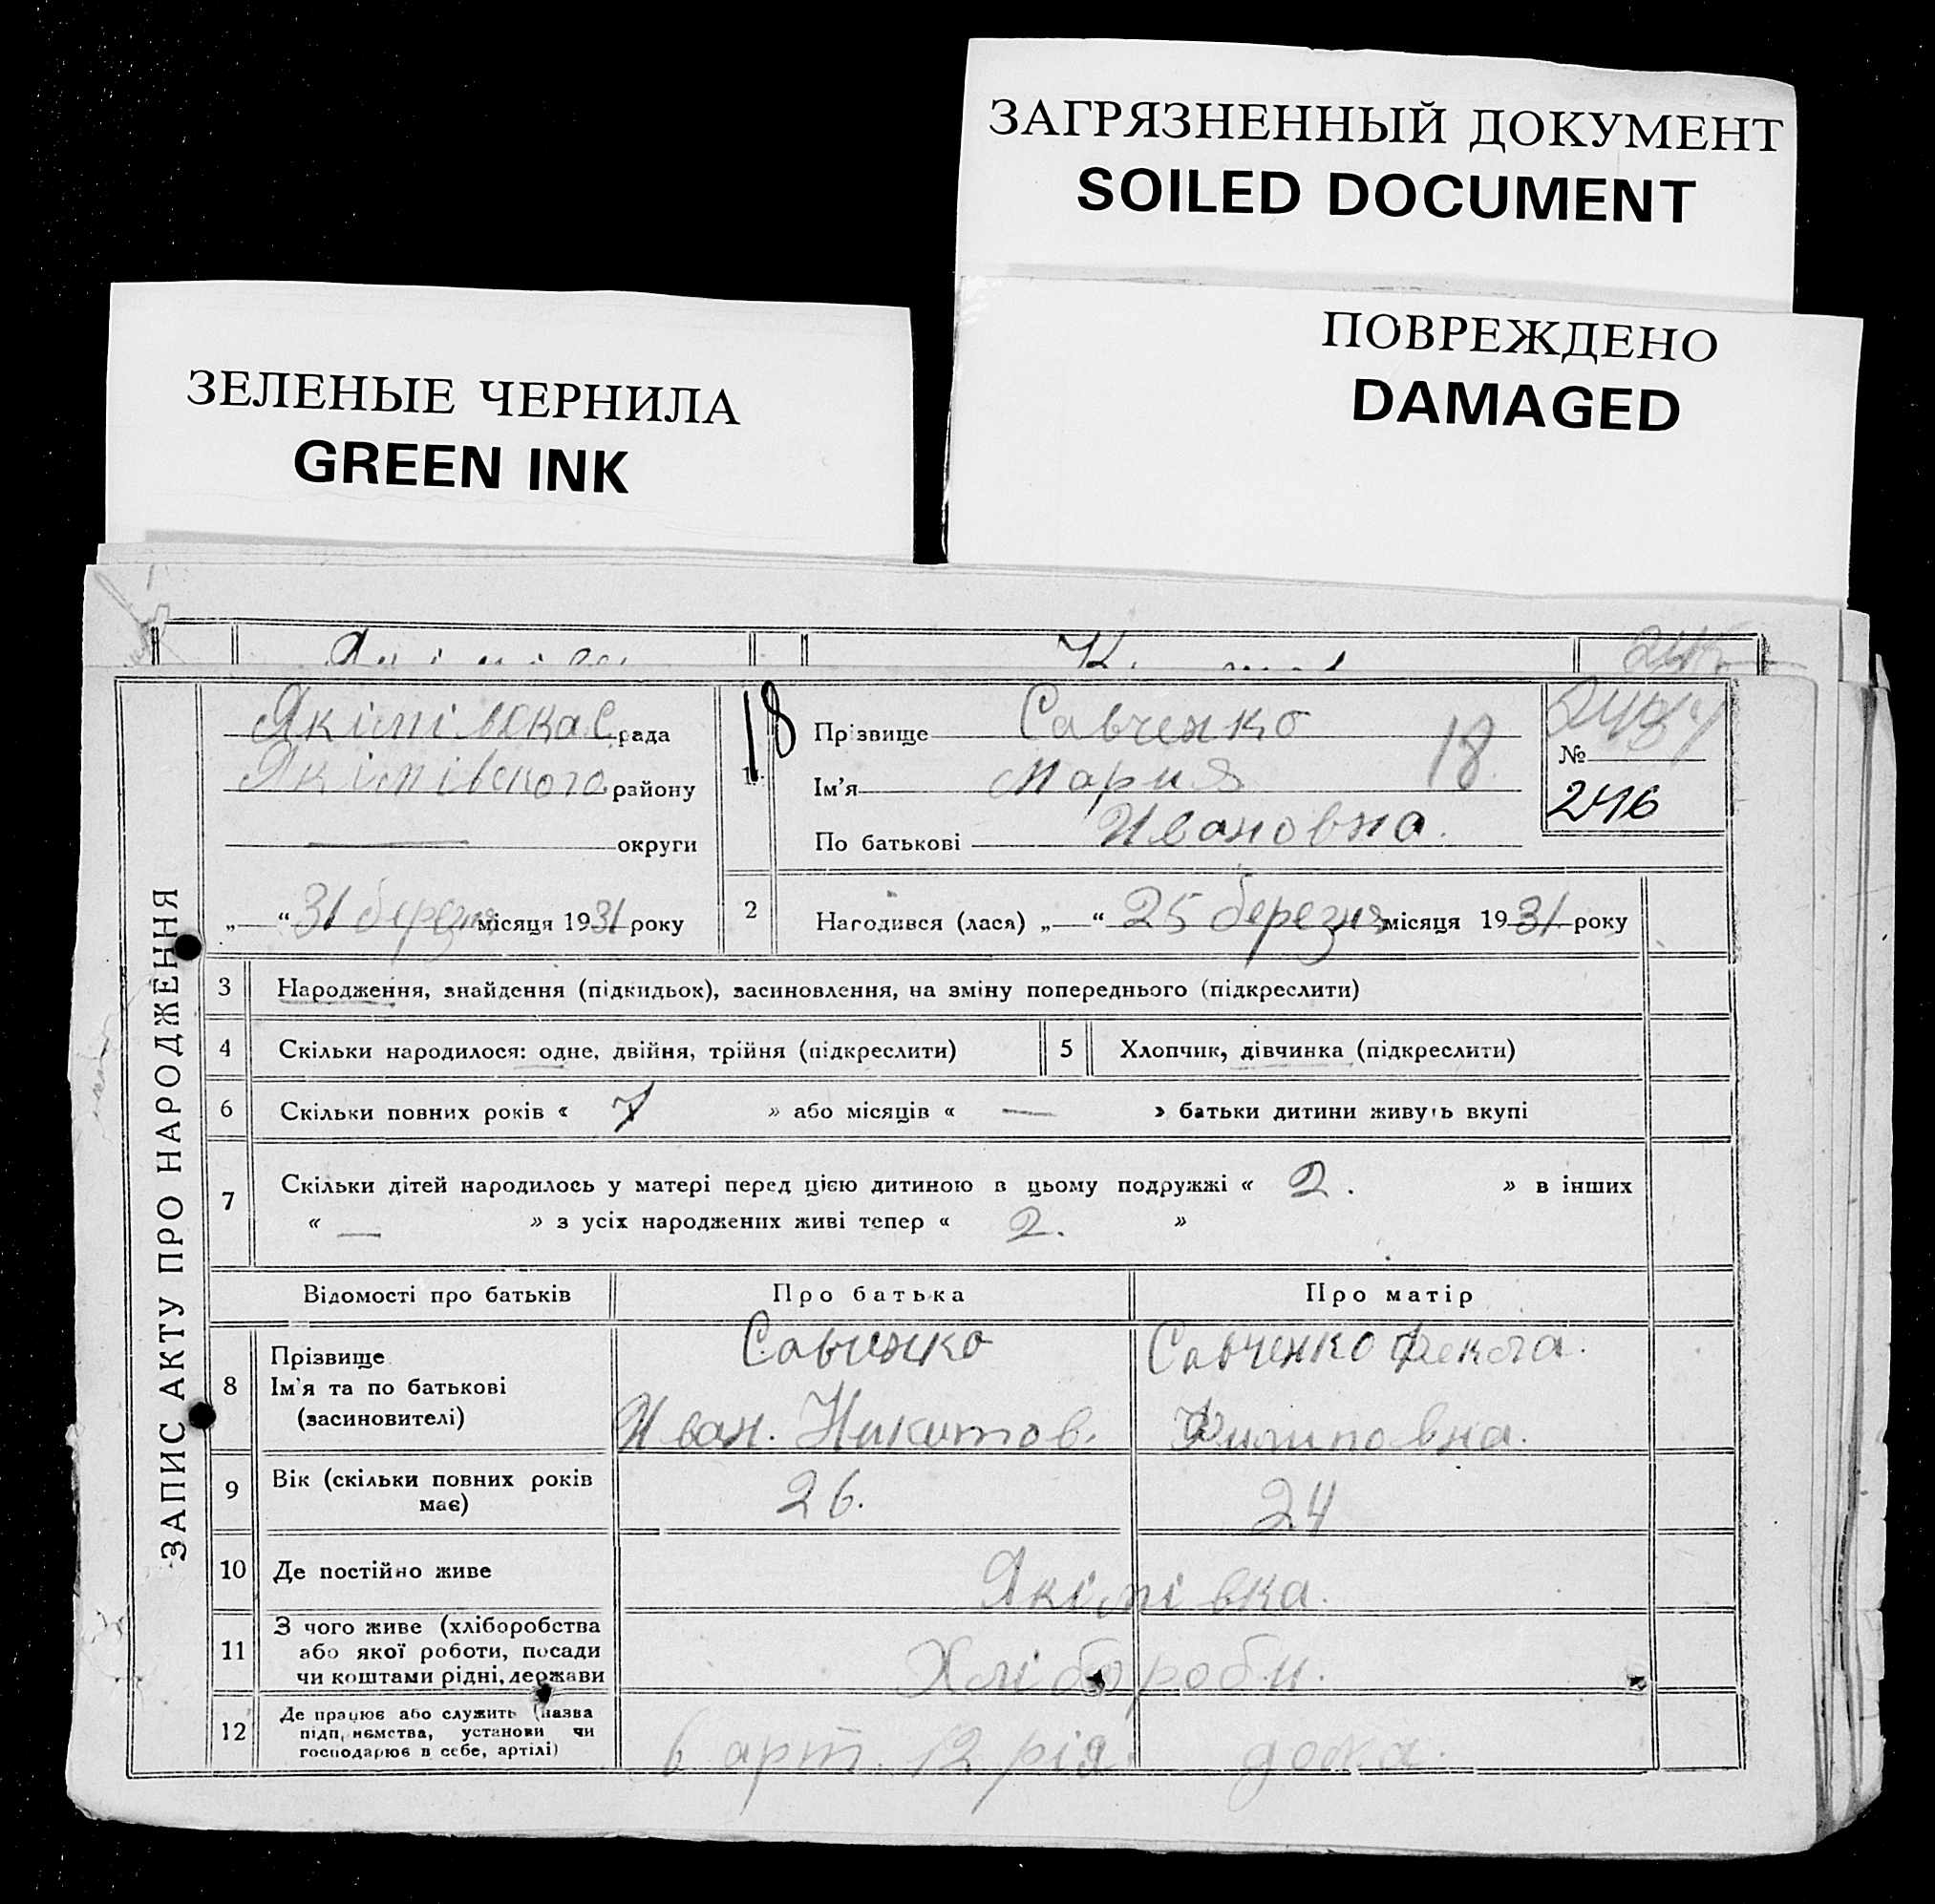 ЗАГРЯЗНЕННЫЙ ДОКУМЕНТ
SOILED DOCUMENT
ПОВРЕЖДЕНО
DAMAGED
ЗЕЛЕНЫЕ ЧЕРНИЛА
GREEN INK
ЗАПИС АКТУ ПРО НАРОДЖЕННЯ
Якімівська С. рада
Якімівского району
— округи
„—“ 31 березня місяця 1931 року
18
1.
Прізвище Савченко
Ім'я Мария 18
По батькові Ивановна.
№
246
2 Народився (лася) „—“ 25 березня місяця 1931 року
3 Народження, знайдення (підкидьок), засиновлення, на зміну попереднього (підкреслити)
4 Скільки народилося: одне, двійня, трійня (підкреслити) 5 Хлопчик, дівчинка (підкреслити)
6 Скільки повних років « 7 » або місяців « — » батьки дитини живуть вкупі
7 Скільки дітей народилось у матері перед цією дитиною в цьому подружжі « 2. » в інших
« — » з усіх народжених живі тепер « 2. »
Відомості про батьків Про батька Про матір
8 Прізвище Савченко Савченко Фекла.
Ім'я та по батькові
(засиновителі) Иван. Никитов. Филиповна.
9 Вік (скільки повних років має) 26. 24
10 Де постійно живе Якімівка.
11 З чого живе (хліборобства
або якої роботи, посади
чи коштами рідні, держави Хлібороби.
12 Де працює або служить (назва
підприємства, установи чи
господарює в себе, артілі) в арт. 12 рія дома.